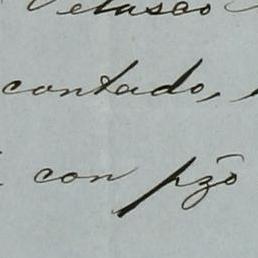 Velasco
contado,
con pzo